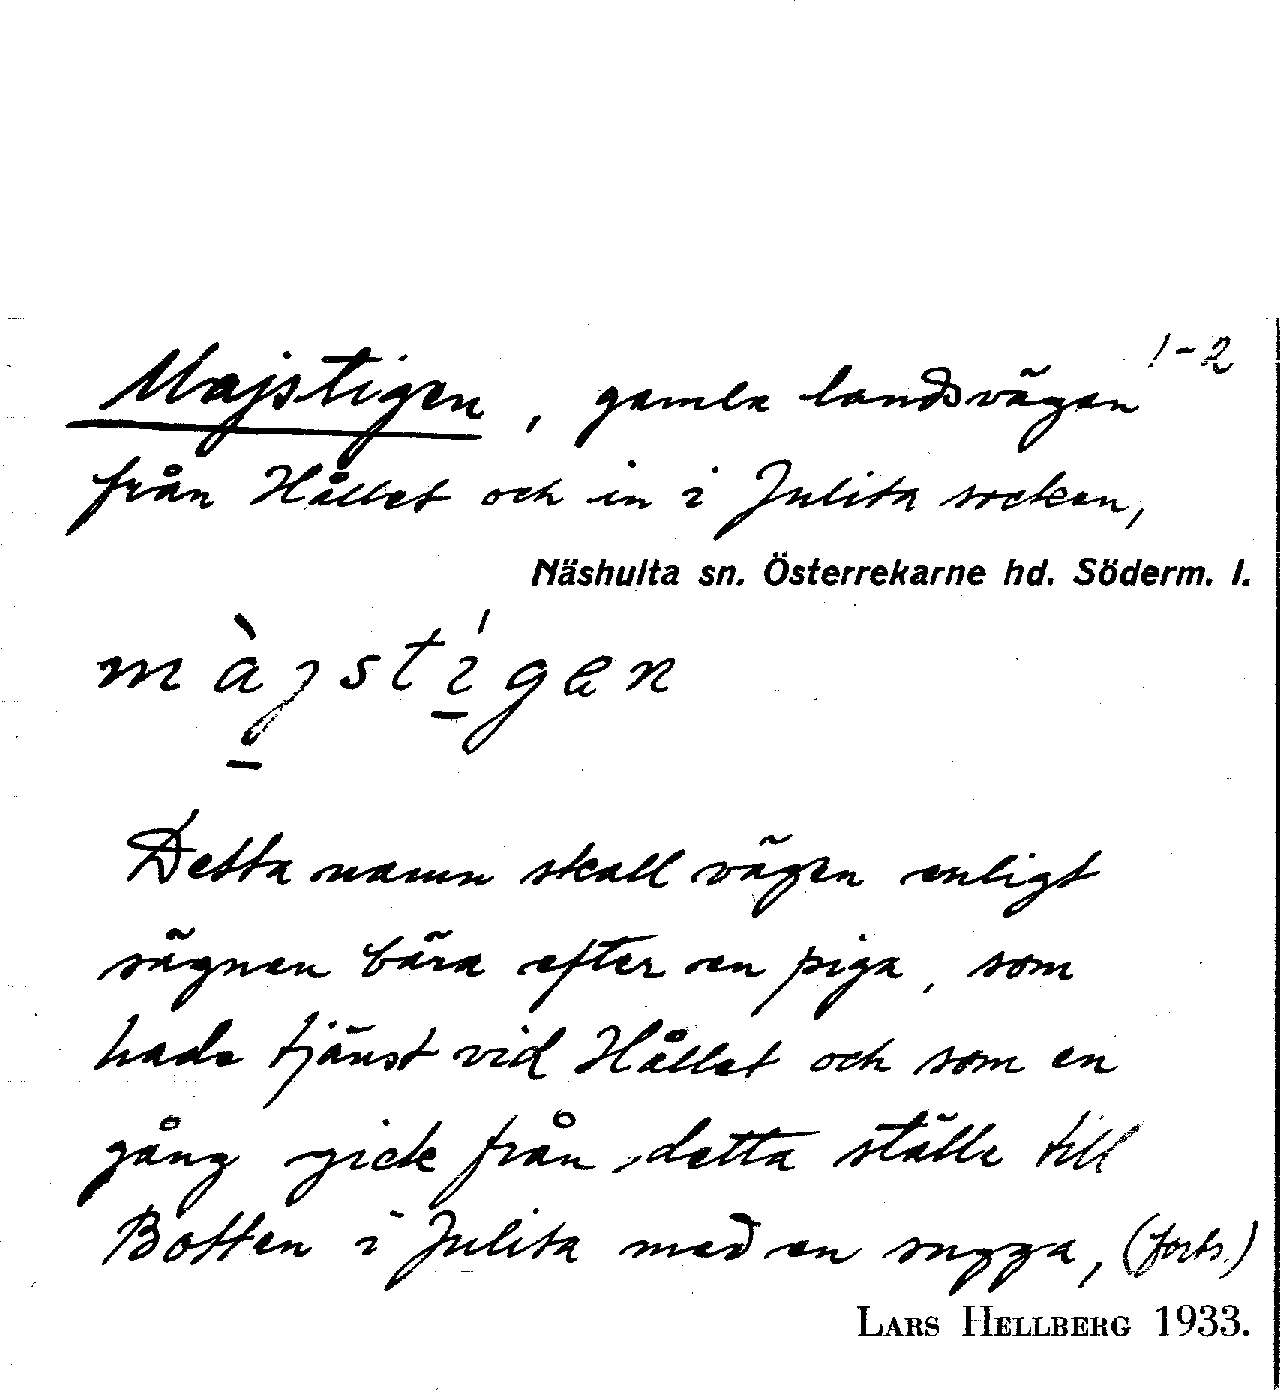 1-2
Majstigen, gamla landsvägen
från Hållet och in i Julita socken,
Näshulta sn. Österrekarne hd. Söderm. l.
màjstígen
Detta namn skall vägen enligt
sägnen bära efter en piga, som
hade tjänst vid Hållet och som en
gång gick från detta ställe till
Botten i Julita med en sugga, (forts.)
LARS HELLBERG 1933.